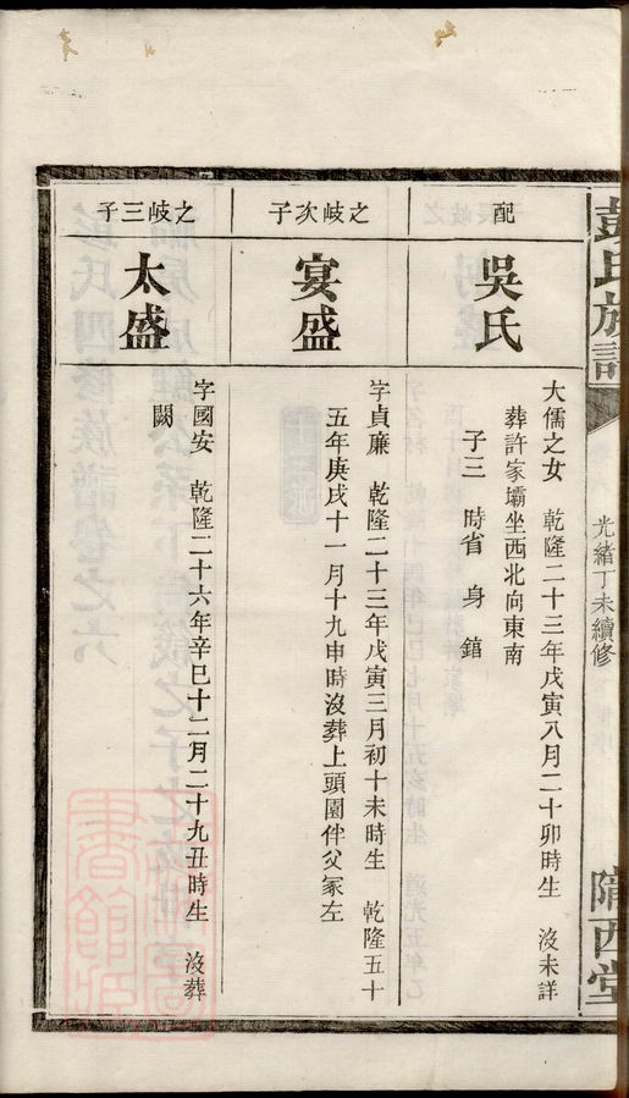 彭氏族譜
光緒丁未續修
隴西堂
配
吳氏
大儒之女 乾隆二十三年戊寅八月二十卯時生 沒未詳
葬許家壩坐西北向東南
子三 時省 身 錧
之岐次子
宴盛
字貞廉 乾隆二十三年戊寅三月初十未時生 乾隆五十
五年庚戌十一月十九申時沒葬上頭園伴父冢左
之岐三子
太盛
字國安 乾隆二十六年辛巳十二月二十九丑時生 沒葬
闕